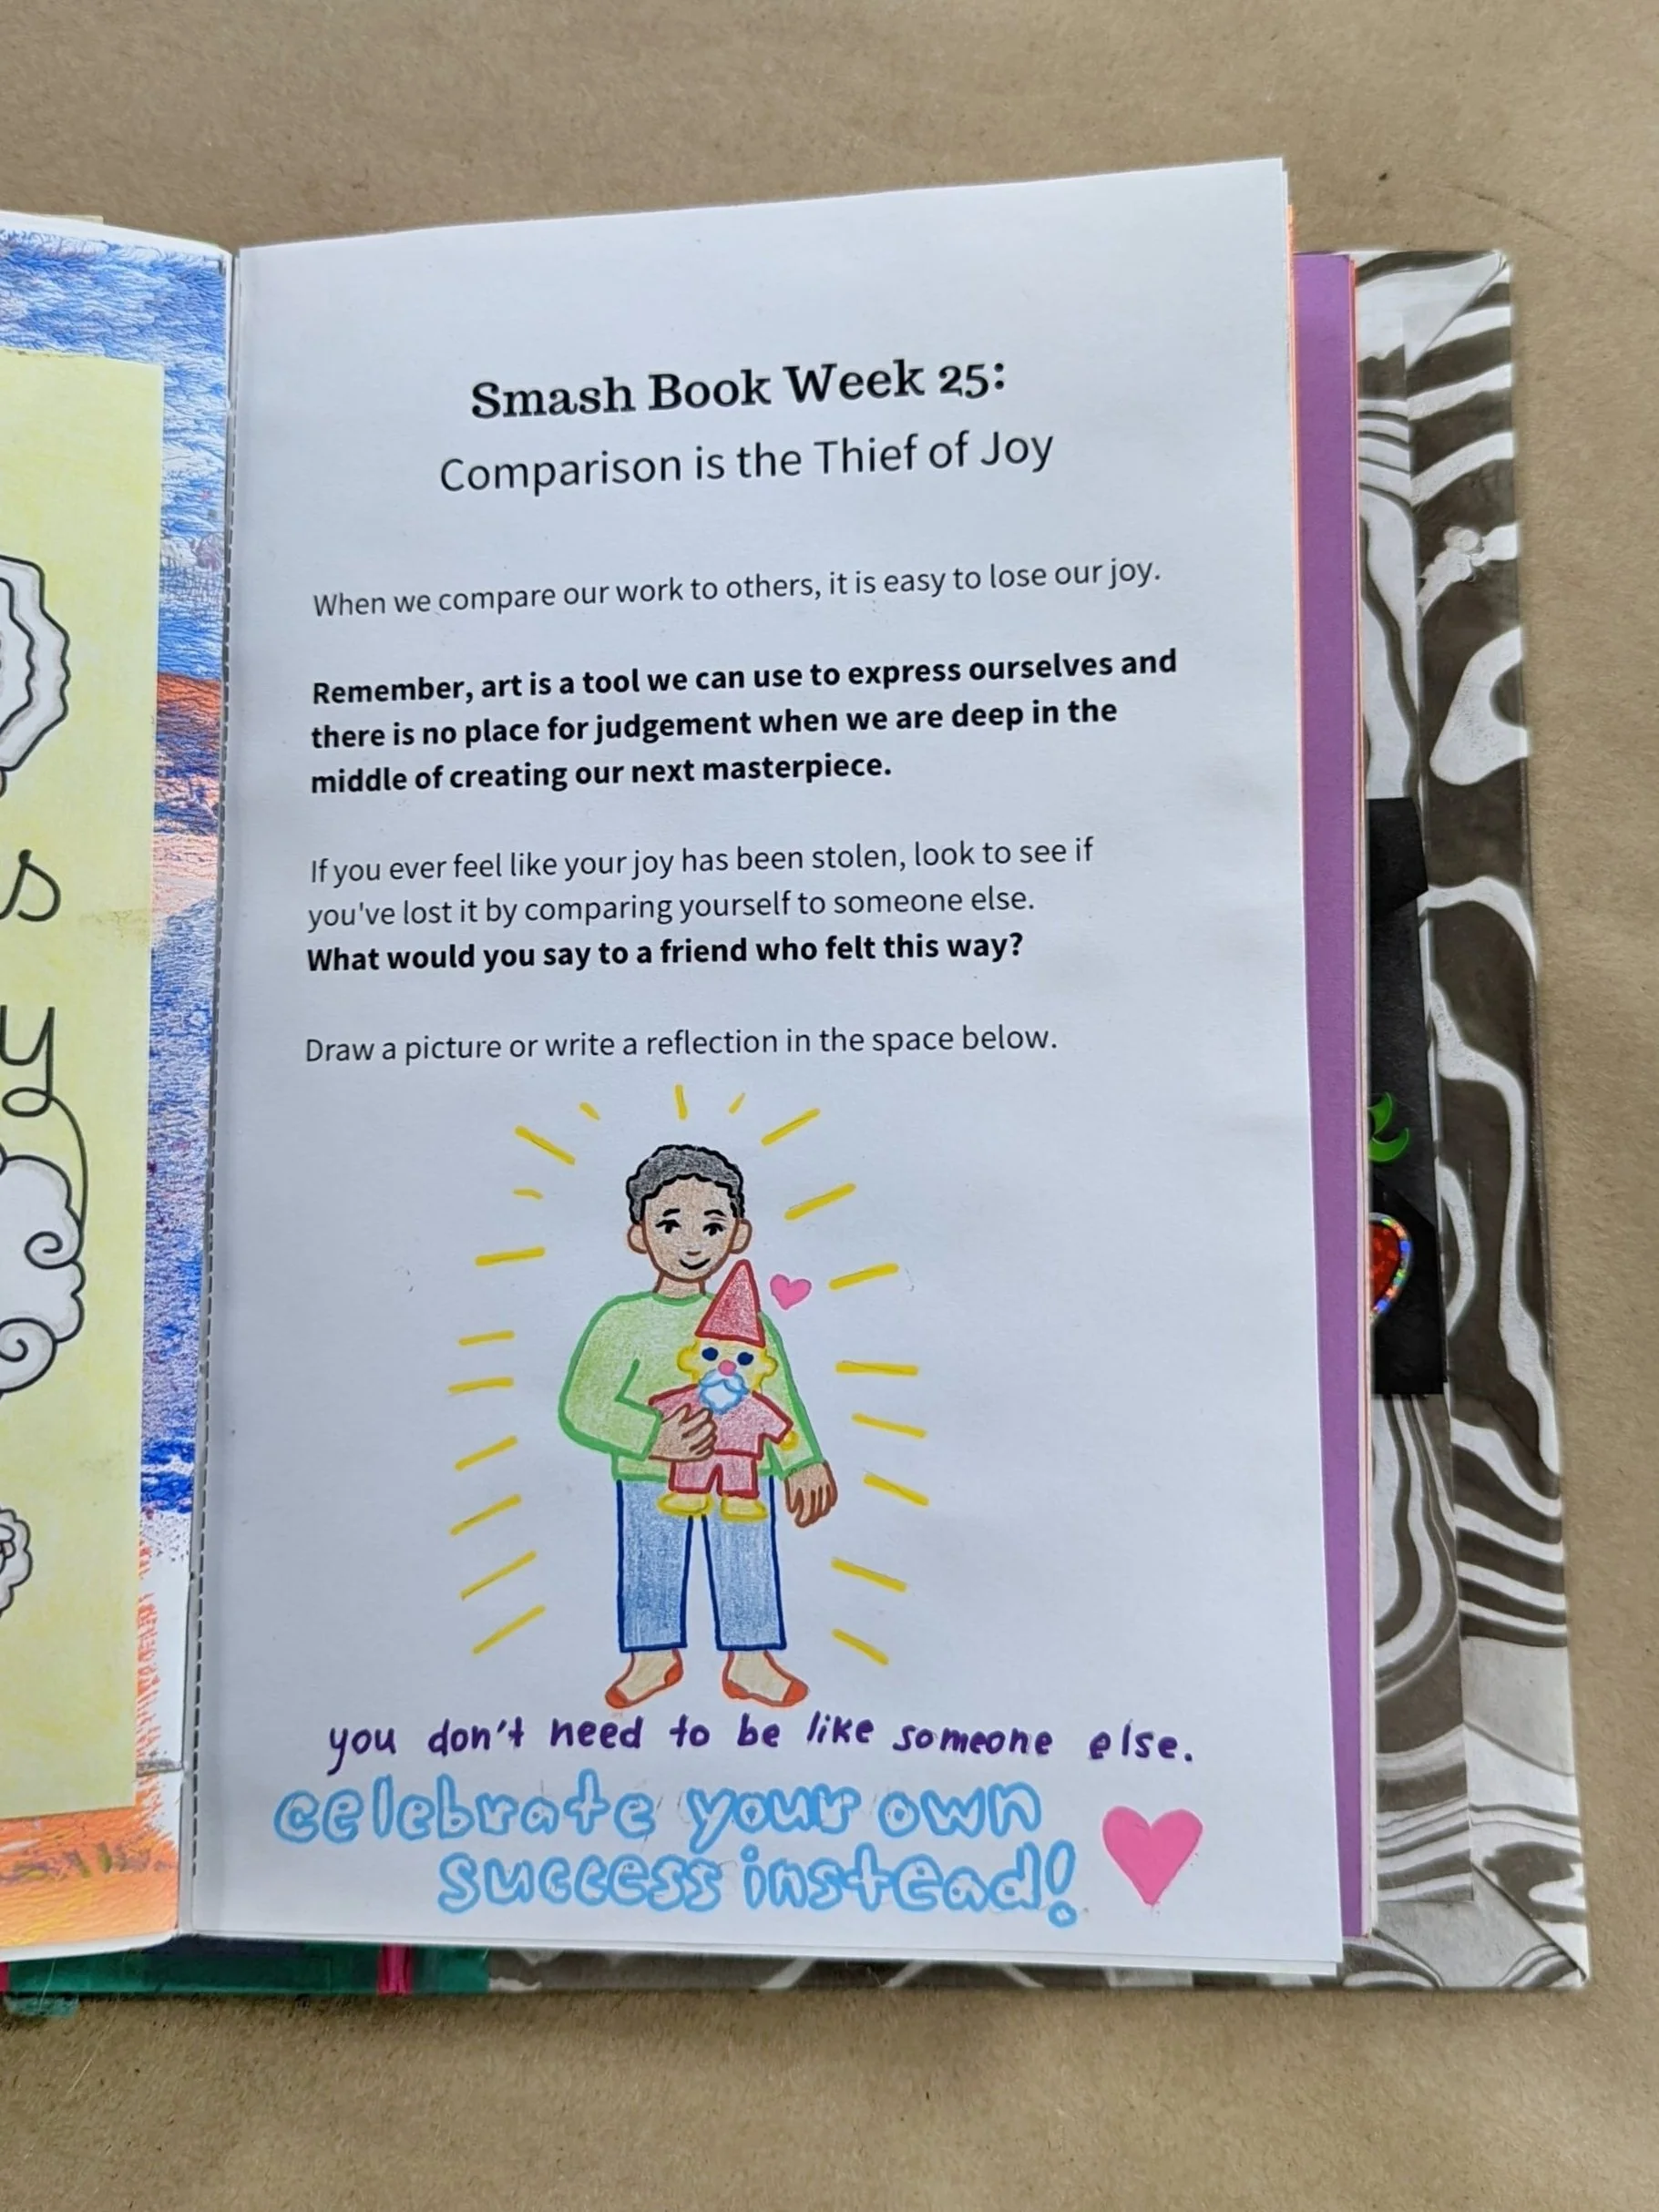 Smash Book Week 25:
Comparison is the Thief of Joy
When we compare our work to others, it is easy to lose our joy.
Remember, art is a tool we can use to express ourselves and
there is no place for judgement when we are deep in the
middle of creating our next masterpiece.
If you ever feel like your joy has been stolen, look to see if
you've lost it by comparing yourself to someone else.
What would you say to a friend who felt this way?
Draw a picture or write a reflection in the space below.
you don't need to be like someone else.
celebrate your own
success instead!